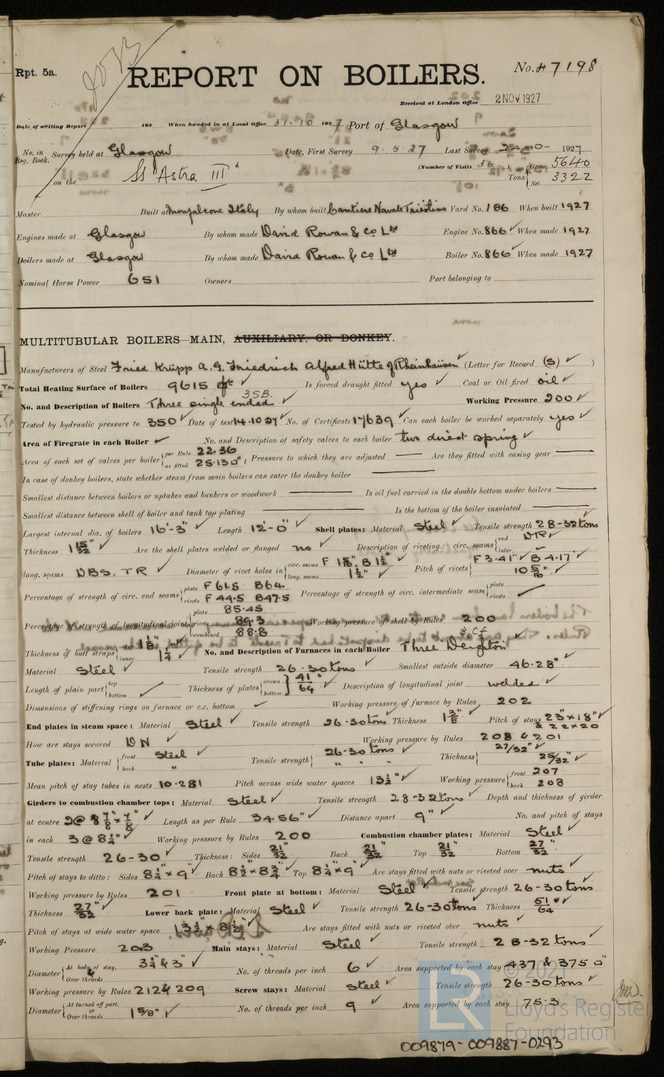 Rpt. 5a.
REPORT ON BOILERS.
No. 47198
Received at London Office 2 NOV 1927
Date of writing Report 192 When handed in at Local Office 31-10 1927 Port of Glasgow
No. in Reg. Book. Survey held at Glasgow Date, First Survey 9.5.27 Last Survey 1927
on the SS "Astra III" (Number of Visits ) Tons Gross 5640 Net 3322
Master Built at Monfalcone Italy By whom built Cantiere Navale Triestino Yard No. 186 When built 1927
Engines made at Glasgow By whom made David Rowan & Co Ltd Engine No. 866 When made 1927
Boilers made at Glasgow By whom made David Rowan & Co Ltd Boiler No. 866 When made 1927
Nominal Horse Power 651 Owners Port belonging to
MULTITUBULAR BOILERS—MAIN, AUXILIARY, OR DONKEY.
Manufacturers of Steel Fried Krüpp A.G. Friedrich Alfred Hütte Rheinhausen (Letter for Record (S) )
Total Heating Surface of Boilers 9615 Is forced draught fitted yes Coal or Oil fired oil
3 S.B.
No. and Description of Boilers Three single ended Working Pressure 200
Tested by hydraulic pressure to 350 Date of test 14.10.27 No. of Certificate 17639 Can each boiler be worked separately yes
Area of Firegrate in each Boiler No. and Description of safety valves to each boiler two direct spring
Area of each set of valves per boiler per Rule 22.36 as fitted 25.13 Pressure to which they are adjusted Are they fitted with easing gear
In case of donkey boilers, state whether steam from main boilers can enter the donkey boiler
Smallest distance between boilers or uptakes and bunkers or woodwork Is oil fuel carried in the double bottom under boilers
Smallest distance between shell of boiler and tank top plating Is the bottom of the boiler insulated
Largest internal dia. of boilers 16'-3" Length 12'-0" Shell plates: Material Steel Tensile strength 28-32 tons
Thickness Are the shell plates welded or flanged no Description of riveting: circ. seams end DR
long. seams DBS. TR Diameter of rivet holes in circ. seams long. seams 1½" Pitch of rivets F 3.41" B 4.17" 10 5/16"
Percentage of strength of circ. end seams plate F 61.5 B 64 rivets F 44.5 B 47.5 Percentage of strength of circ. intermediate seam plate rivets
Percentage of strength of longitudinal joint plate 85.45 rivets combined 88.8 Working pressure of shell by Rules 200
Thickness of butt straps outer inner No. and Description of Furnaces in each Boiler Three Deighton
Material Steel Tensile strength 26-30 tons Smallest outside diameter 46.28"
Length of plain part top bottom Thickness of plates crown bottom 41/64 Description of longitudinal joint welded
Dimensions of stiffening rings on furnace or c.c. bottom Working pressure of furnace by Rules 202
End plates in steam space: Material Steel Tensile strength 26-30 tons Thickness 1 3/8" Pitch of stays 23" x 18" & 22 x 20
How are stays secured DN Working pressure by Rules 208 & 201
Tube plates: Material front Steel back " Tensile strength 26-30 tons " " Thickness 27/32" 25/32"
Mean pitch of stay tubes in nests 10.281 Pitch across wide water spaces 13½" Working pressure front 207 back 208
Girders to combustion chamber tops: Material Steel Tensile strength 28-32 tons Depth and thickness of girder
at centre 2@ 8 7/8" x 7/8" Length as per Rule 34.56" Distance apart 9" No. and pitch of stays
in each 3 @ 8¼" Working pressure by Rules 200 Combustion chamber plates: Material Steel
Tensile strength 26-30 Thickness: Sides 21/32 Back 21/32 Top 21/32 Bottom 27/32
Pitch of stays to ditto: Sides 8¼" x 9" Back 8½" x 8¾" Top 8¼" x 9" Are stays fitted with nuts or riveted over nuts
Working pressure by Rules 201 Front plate at bottom: Material Steel Tensile strength 26-30 tons
Thickness 27/32 Lower back plate: Material Steel Tensile strength 26-30 tons Thickness 51/64
Pitch of stays at wide water space 13½" x 8½" Are stays fitted with nuts or riveted over nuts
Working Pressure 203 Main stays: Material Steel Tensile strength 28-32 tons
Diameter At body of stay, or Over threads 3¼" & 3" No. of threads per inch 6 Area supported by each stay 437 & 375
Working pressure by Rules 212 & 209 Screw stays: Material Steel Tensile strength 26-30 tons
Diameter At turned off part, or Over threads 1 5/8" No. of threads per inch 9 Area supported by each stay 75.3
© 2021
Lloyd's Register
Foundation
LR
009879-009887-0293